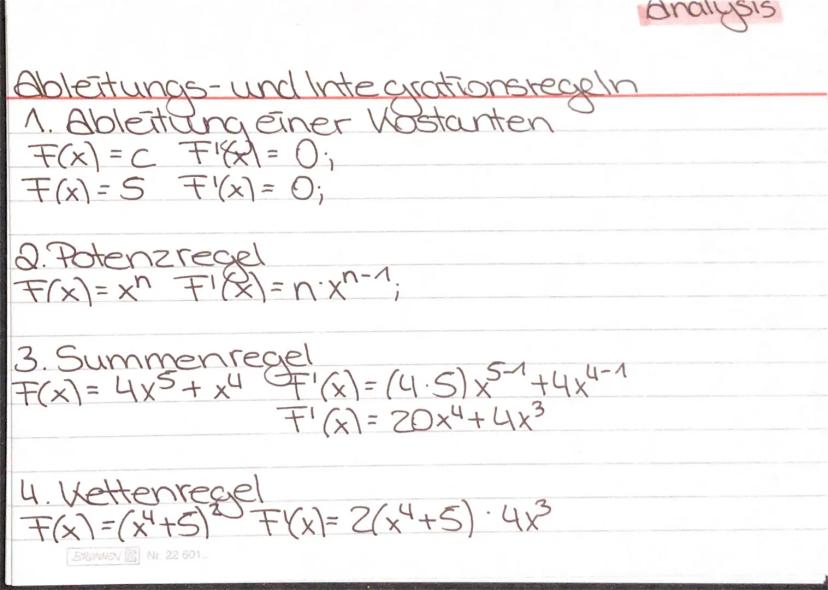 Analysis
Ableitungs- und Integrationsregeln
1. Ableitung einer Kostanten
F(x) = C F'(x) = 0;
F(x) = 5 F'(x) = 0;
2. Potenzregel
F(x) = xⁿ F'(x) = n·xⁿ⁻¹;
3. Summenregel
F(x) = 4x⁵ + x⁴ F'(x) = (4·5)x⁵⁻¹ + 4x⁴⁻¹
F'(x) = 20x⁴ + 4x³
4. Kettenregel
F(x) = (x⁴+5)² F'(x) = 2(x⁴+5) · 4x³
BRUNNEN Nr. 22 601